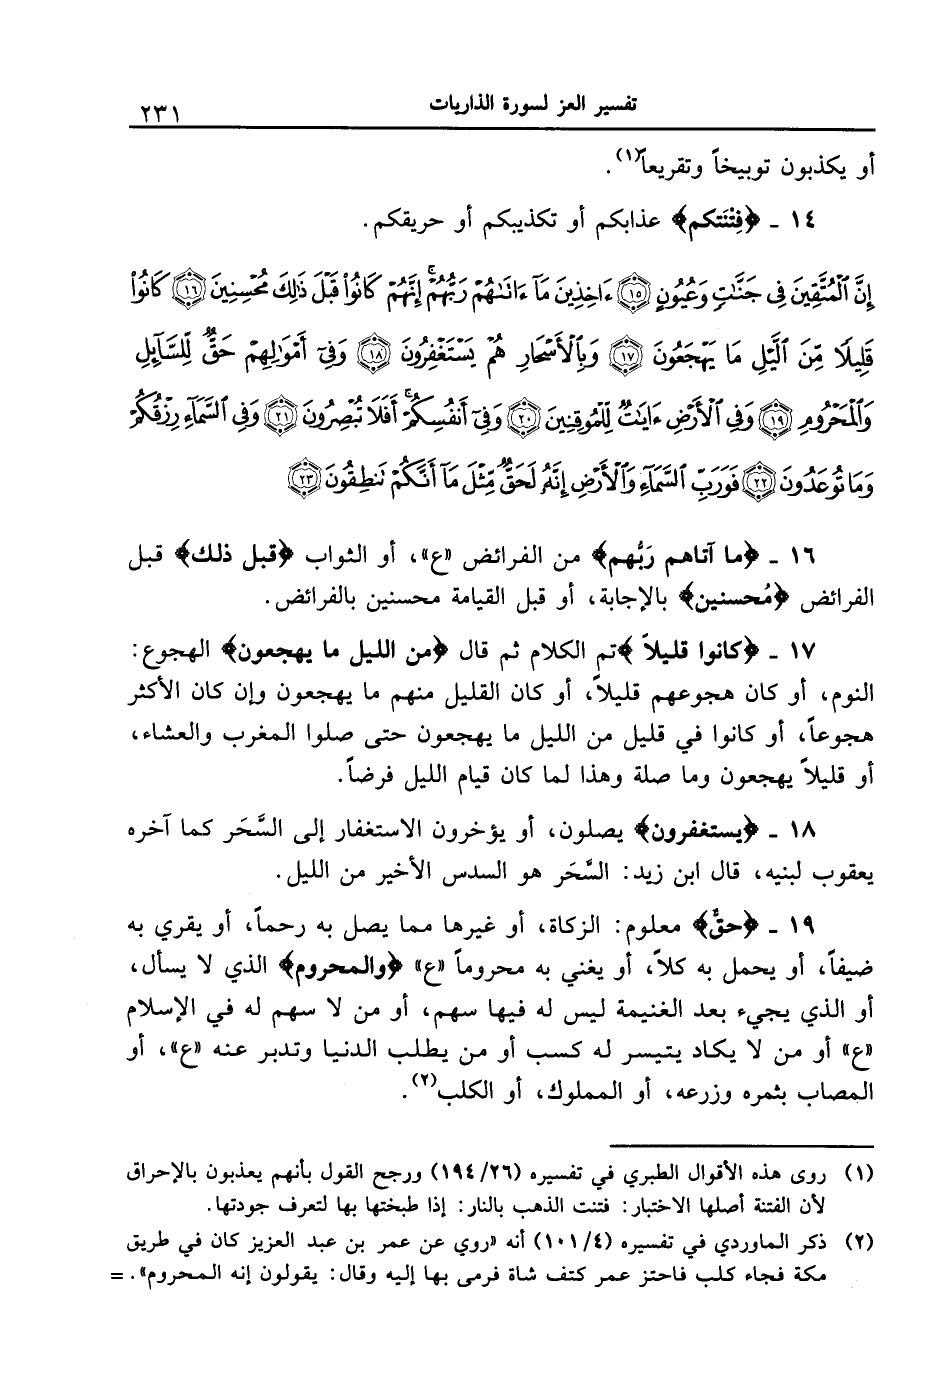 تفسير العز لسورة الذاريات
٢٣١
أو يكذبون توبيخاً وتقريعاً(١).
١٤ ـ ﴿فِتْنَتكم﴾ عذابكم أو تكذيبكم أو حريقكم.
إِنَّ ٱلْمُتَّقِينَ فِى جَنَّـٰتٍ وَعُيُونٍ ﴿١٥﴾ ءَاخِذِينَ مَآ ءَاتَىٰهُمْ رَبُّهُمْ ۚ إِنَّهُمْ كَانُوا۟ قَبْلَ ذَٰلِكَ مُحْسِنِينَ ﴿١٦﴾ كَانُوا۟
قَلِيلًا مِّنَ ٱلَّيْلِ مَا يَهْجَعُونَ ﴿١٧﴾ وَبِٱلْأَسْحَارِ هُمْ يَسْتَغْفِرُونَ ﴿١٨﴾ وَفِىٓ أَمْوَٰلِهِمْ حَقٌّ لِّلسَّآئِلِ
وَٱلْمَحْرُومِ ﴿١٩﴾ وَفِى ٱلْأَرْضِ ءَايَـٰتٌ لِّلْمُوقِنِينَ ﴿٢٠﴾ وَفِىٓ أَنفُسِكُمْ ۚ أَفَلَا تُبْصِرُونَ ﴿٢١﴾ وَفِى ٱلسَّمَآءِ رِزْقُكُمْ
وَمَا تُوعَدُونَ ﴿٢٢﴾ فَوَرَبِّ ٱلسَّمَآءِ وَٱلْأَرْضِ إِنَّهُۥ لَحَقٌّ مِّثْلَ مَآ أَنَّكُمْ تَنطِقُونَ ﴿٢٣﴾
١٦ ـ ﴿ما آتاهم رَبُّهم﴾ من الفرائض «ع»، أو الثواب ﴿قبل ذلك﴾ قبل
الفرائض ﴿مُحسنين﴾ بالإجابة، أو قبل القيامة محسنين بالفرائض.
١٧ ـ ﴿كانوا قليلاً ﴾تم الكلام ثم قال ﴿من الليل ما يهجعون﴾ الهجوع:
النوم، أو كان هجوعهم قليلاً، أو كان القليل منهم ما يهجعون وإن كان الأكثر
هجوعاً، أو كانوا في قليل من الليل ما يهجعون حتى صلوا المغرب والعشاء،
أو قليلاً يهجعون وما صلة وهذا لما كان قيام الليل فرضاً.
١٨ ـ ﴿يستغفرون﴾ يصلون، أو يؤخرون الاستغفار إلى السَّحَر كما آخره
يعقوب لبنيه، قال ابن زيد: السَّحَر هو السدس الأخير من الليل.
١٩ ـ ﴿حقٌّ﴾ معلوم: الزكاة، أو غيرها مما يصل به رحماً، أو يقري به
ضيفاً، أو يحمل به كلاً، أو يغني به محروماً «ع» ﴿والمحروم﴾ الذي لا يسأل،
أو الذي يجيء بعد الغنيمة ليس له فيها سهم، أو من لا سهم له في الإسلام
«ع» أو من لا يكاد يتيسر له كسب أو من يطلب الدنيا وتدبر عنه «ع»، أو
المصاب بثمره وزرعه، أو المملوك، أو الكلب(٢).
(١) روى هذه الأقوال الطبري في تفسيره (١٩٤/٢٦) ورجح القول بأنهم يعذبون بالإحراق
لأن الفتنة أصلها الاختبار: فتنت الذهب بالنار: إذا طبختها بها لتعرف جودتها.
(٢) ذكر الماوردي في تفسيره (١٠١/٤) أنه «روي عن عمر بن عبد العزيز كان في طريق
مكة فجاء كلب فاحتز عمر كتف شاة فرمى بها إليه وقال: يقولون إنه المحروم». =